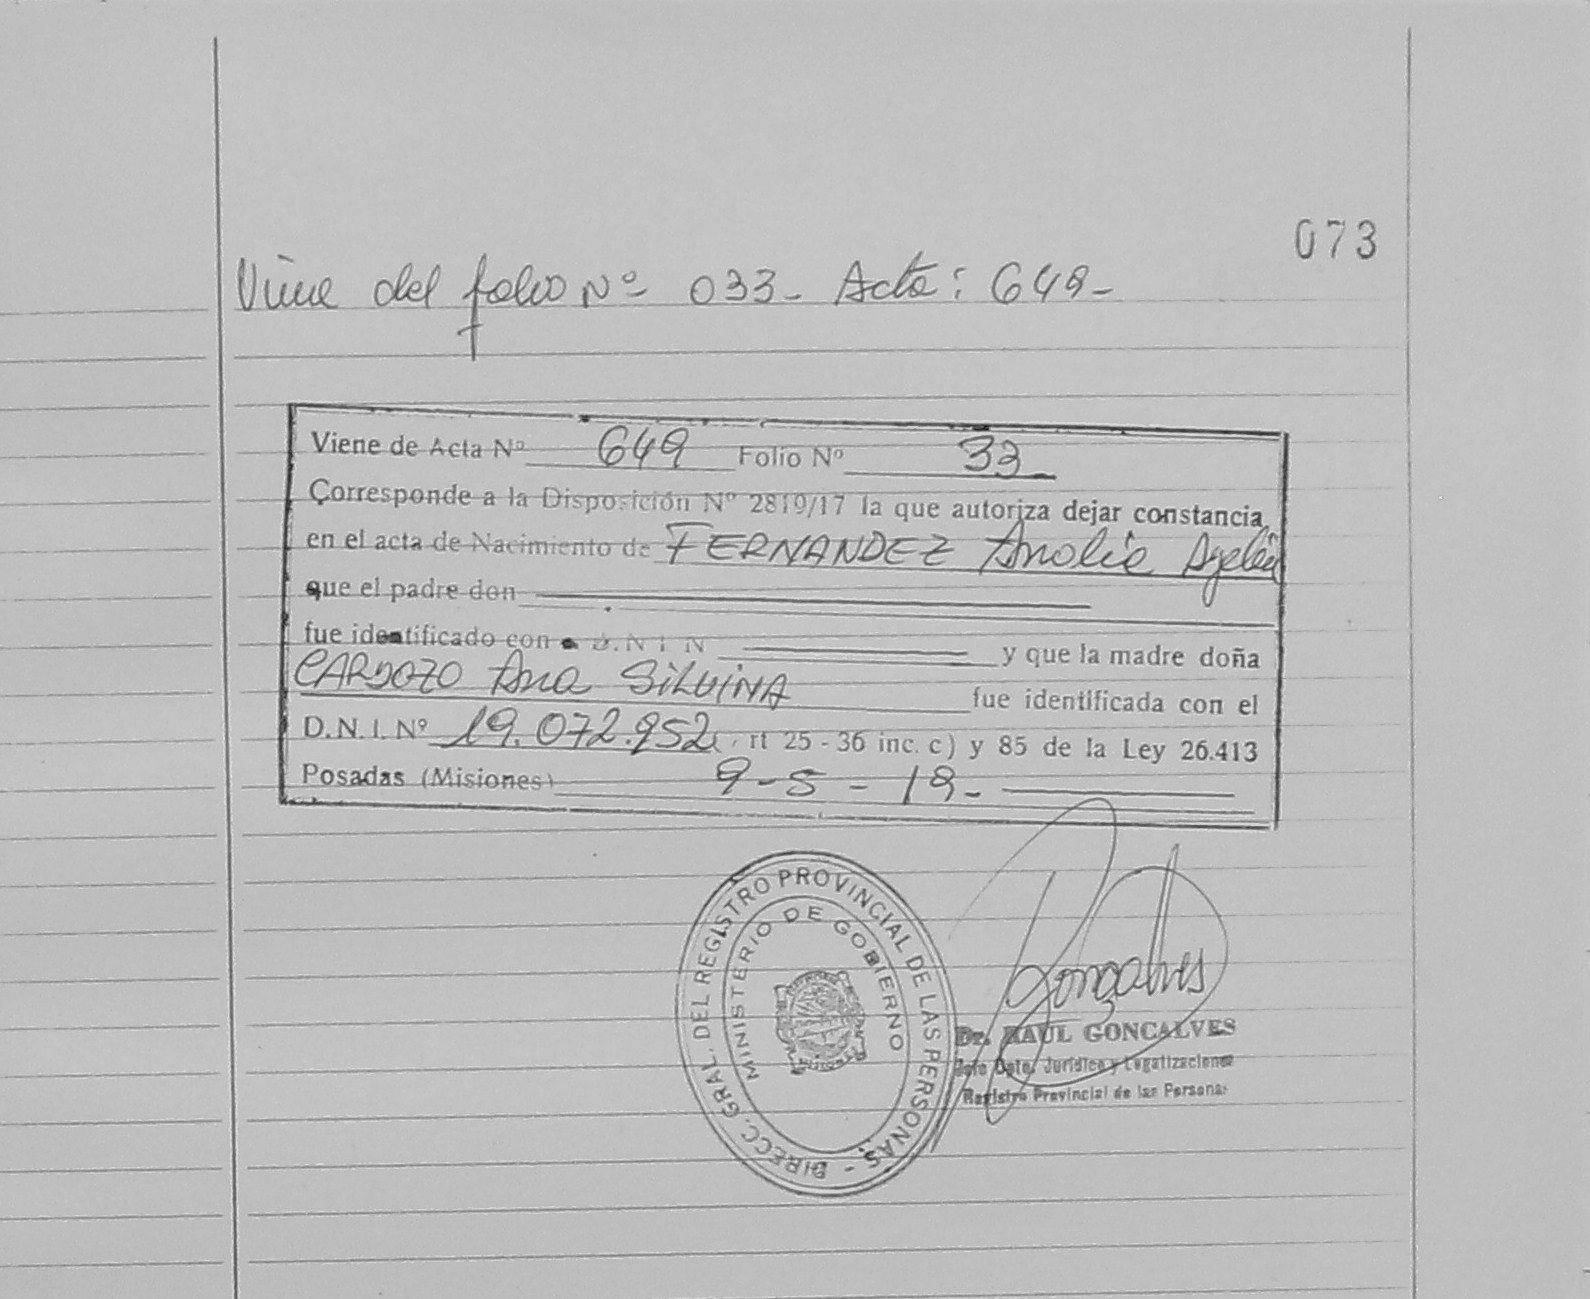 073
Viene del folio Nº 033 - Acta: 649 -
Viene de Acta Nº 649 Folio Nº 33
Corresponde a la Disposición Nº 2819/17 la que autoriza dejar constancia
en el acta de Nacimiento de FERNANDEZ Analia Ayelén
que el padre don
fue identificado con D.N.I. N y que la madre doña
CARDOZO Ana SILVINA fue identificada con el
D.N.I. Nº 19.072.952 rt 25 - 36 inc. c) y 85 de la Ley 26.413
Posadas (Misiones) 9 - 5 - 19 -
DIRECC. GRAL. DEL REGISTRO PROVINCIAL DE LAS PERSONAS -
MINISTERIO DE GOBIERNO
Gonçalves
Dr. RAUL GONCALVES
Jefe Dpto. Jurídico y Legalizaciones
Registro Provincial de las Personas